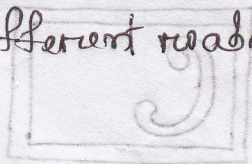 fferent road